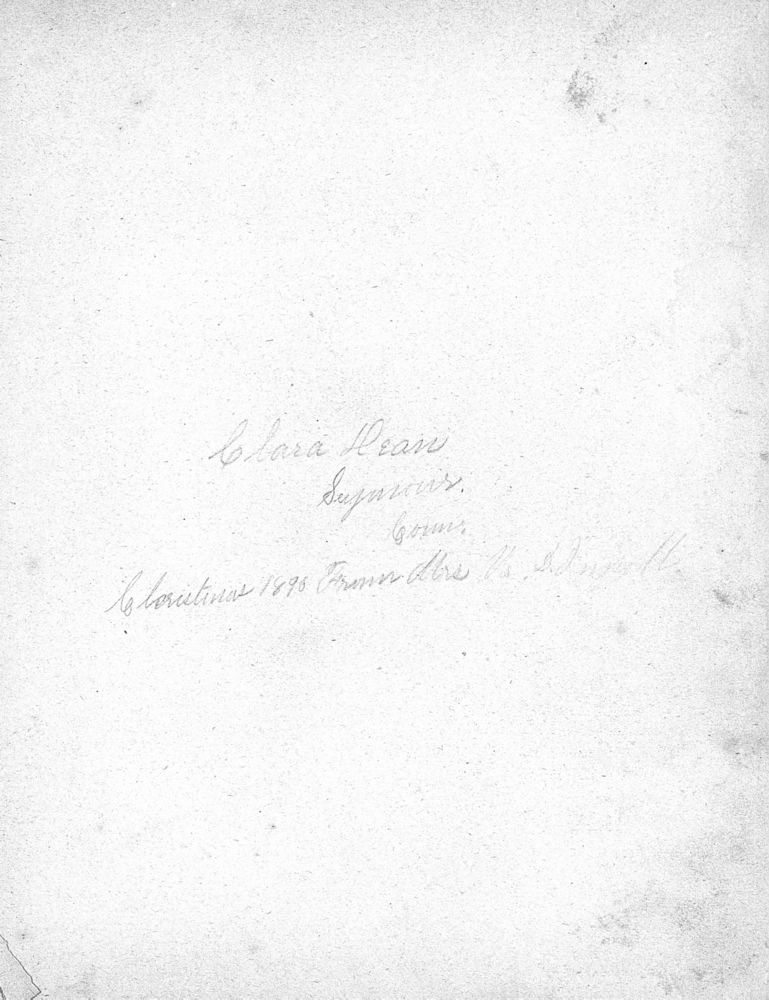 Clara Dean
Seymour.
Conn.
Christmas 1890 From Mrs